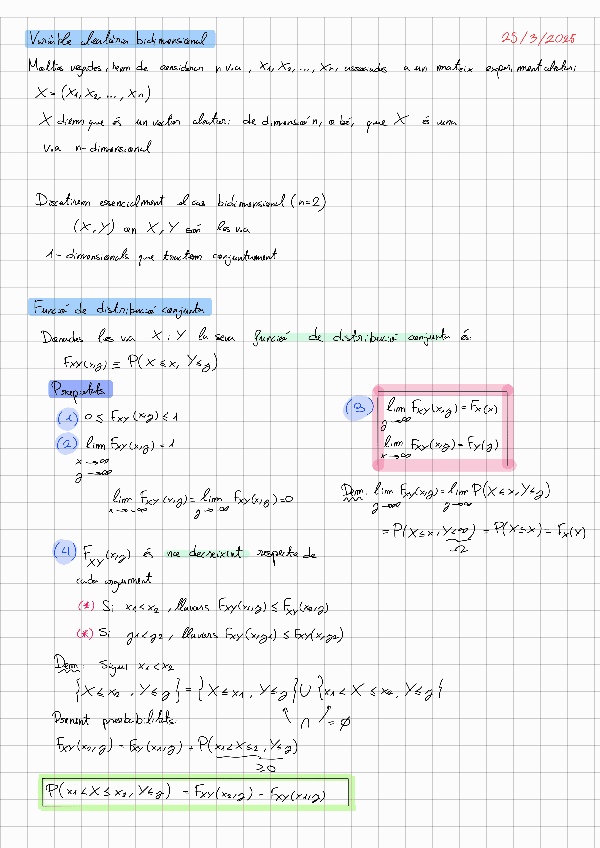 Variable aleatòria bidimensional
25/3/2025
Moltes vegades, hem de considerar n v.a, X1, X2, ..., Xn, associades a un mateix experiment aleatori
X = (X1, X2 ..., Xn)
X diem que és un vector aleatori de dimensió n, o bé, que X és una
v.a n-dimensional
Discutirem essencialment el cas bidimensional (n=2)
(X, Y) on X, Y són les v.a
1-dimensionals que tractem conjuntament
Funció de distribució conjunta
Donades les va X i Y la seva funció de distribució conjunta és
FXY(x,y) ≡ P(X ≤ x, Y ≤ y)
Propietats
(1) 0 ≤ FXY(x,y) ≤ 1
(2) lim FXY(x,y) = 1
x→∞
y→∞
lim FXY(x,y) = lim FXY(x,y) = 0
x→-∞ y→-∞
(3) lim FXY(x,y) = FX(x)
y→∞
lim FXY(x,y) = FY(y)
x→∞
Dem. lim FXY(x,y) = lim P(X ≤ x, Y ≤ y)
y→∞ y→∞
= P(X ≤ x, Y ≤ ∞) = P(X ≤ x) = FX(x)
Ω
(4) FXY(x,y) és no decreixent respecte de
cada argument
(*) Si x1 < x2, llavors FXY(x1,y) ≤ FXY(x2,y)
(*) Si y1 < y2, llavors FXY(x,y1) ≤ FXY(x,y2)
Dem. Sigui x1 < x2
{X ≤ x2, Y ≤ y} = {X ≤ x1, Y ≤ y} U {x1 < X ≤ x2, Y ≤ y}
∩ = ∅
Prenent probabilitats
FXY(x2,y) = FXY(x1,y) + P(x1 < X ≤ x2, Y ≤ y)
≥0
P(x1 < X ≤ x2, Y ≤ y) = FXY(x2,y) - FXY(x1,y)